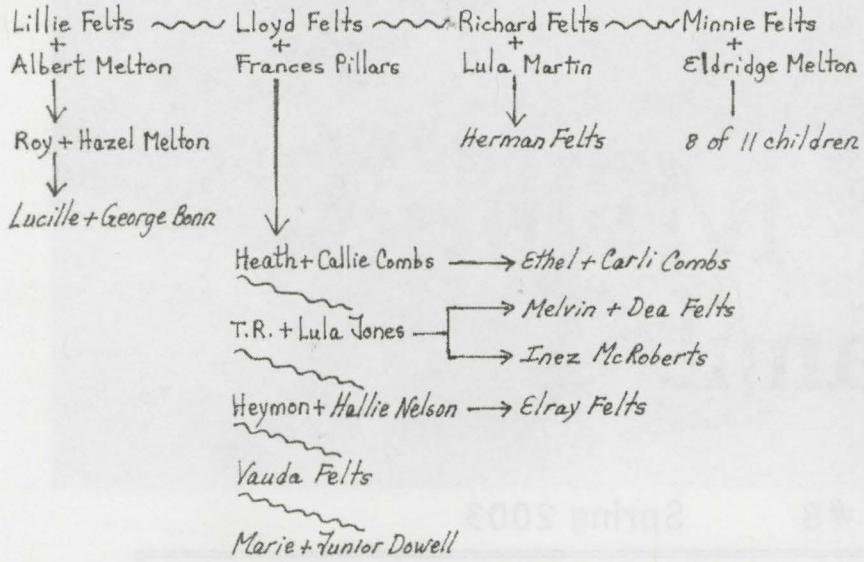 Lillie Felts Lloyd Felts Richard Felts Minnie Felts
+ + + +
Albert Melton Frances Pillars Lula Martin Eldridge Melton
Roy + Hazel Melton Herman Felts 8 of 11 children
Lucille + George Bonn
Heath + Callie Combs Ethel + Carli Combs
Melvin + Dea Felts
T.R. + Lula Jones
Inez McRoberts
Heymon + Hallie Nelson Elray Felts
Vauda Felts
#8 Spring 2003
Marie + Junior Dowell